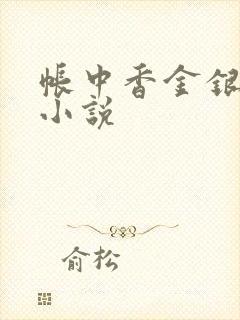 帐中香金银
小说
俞松